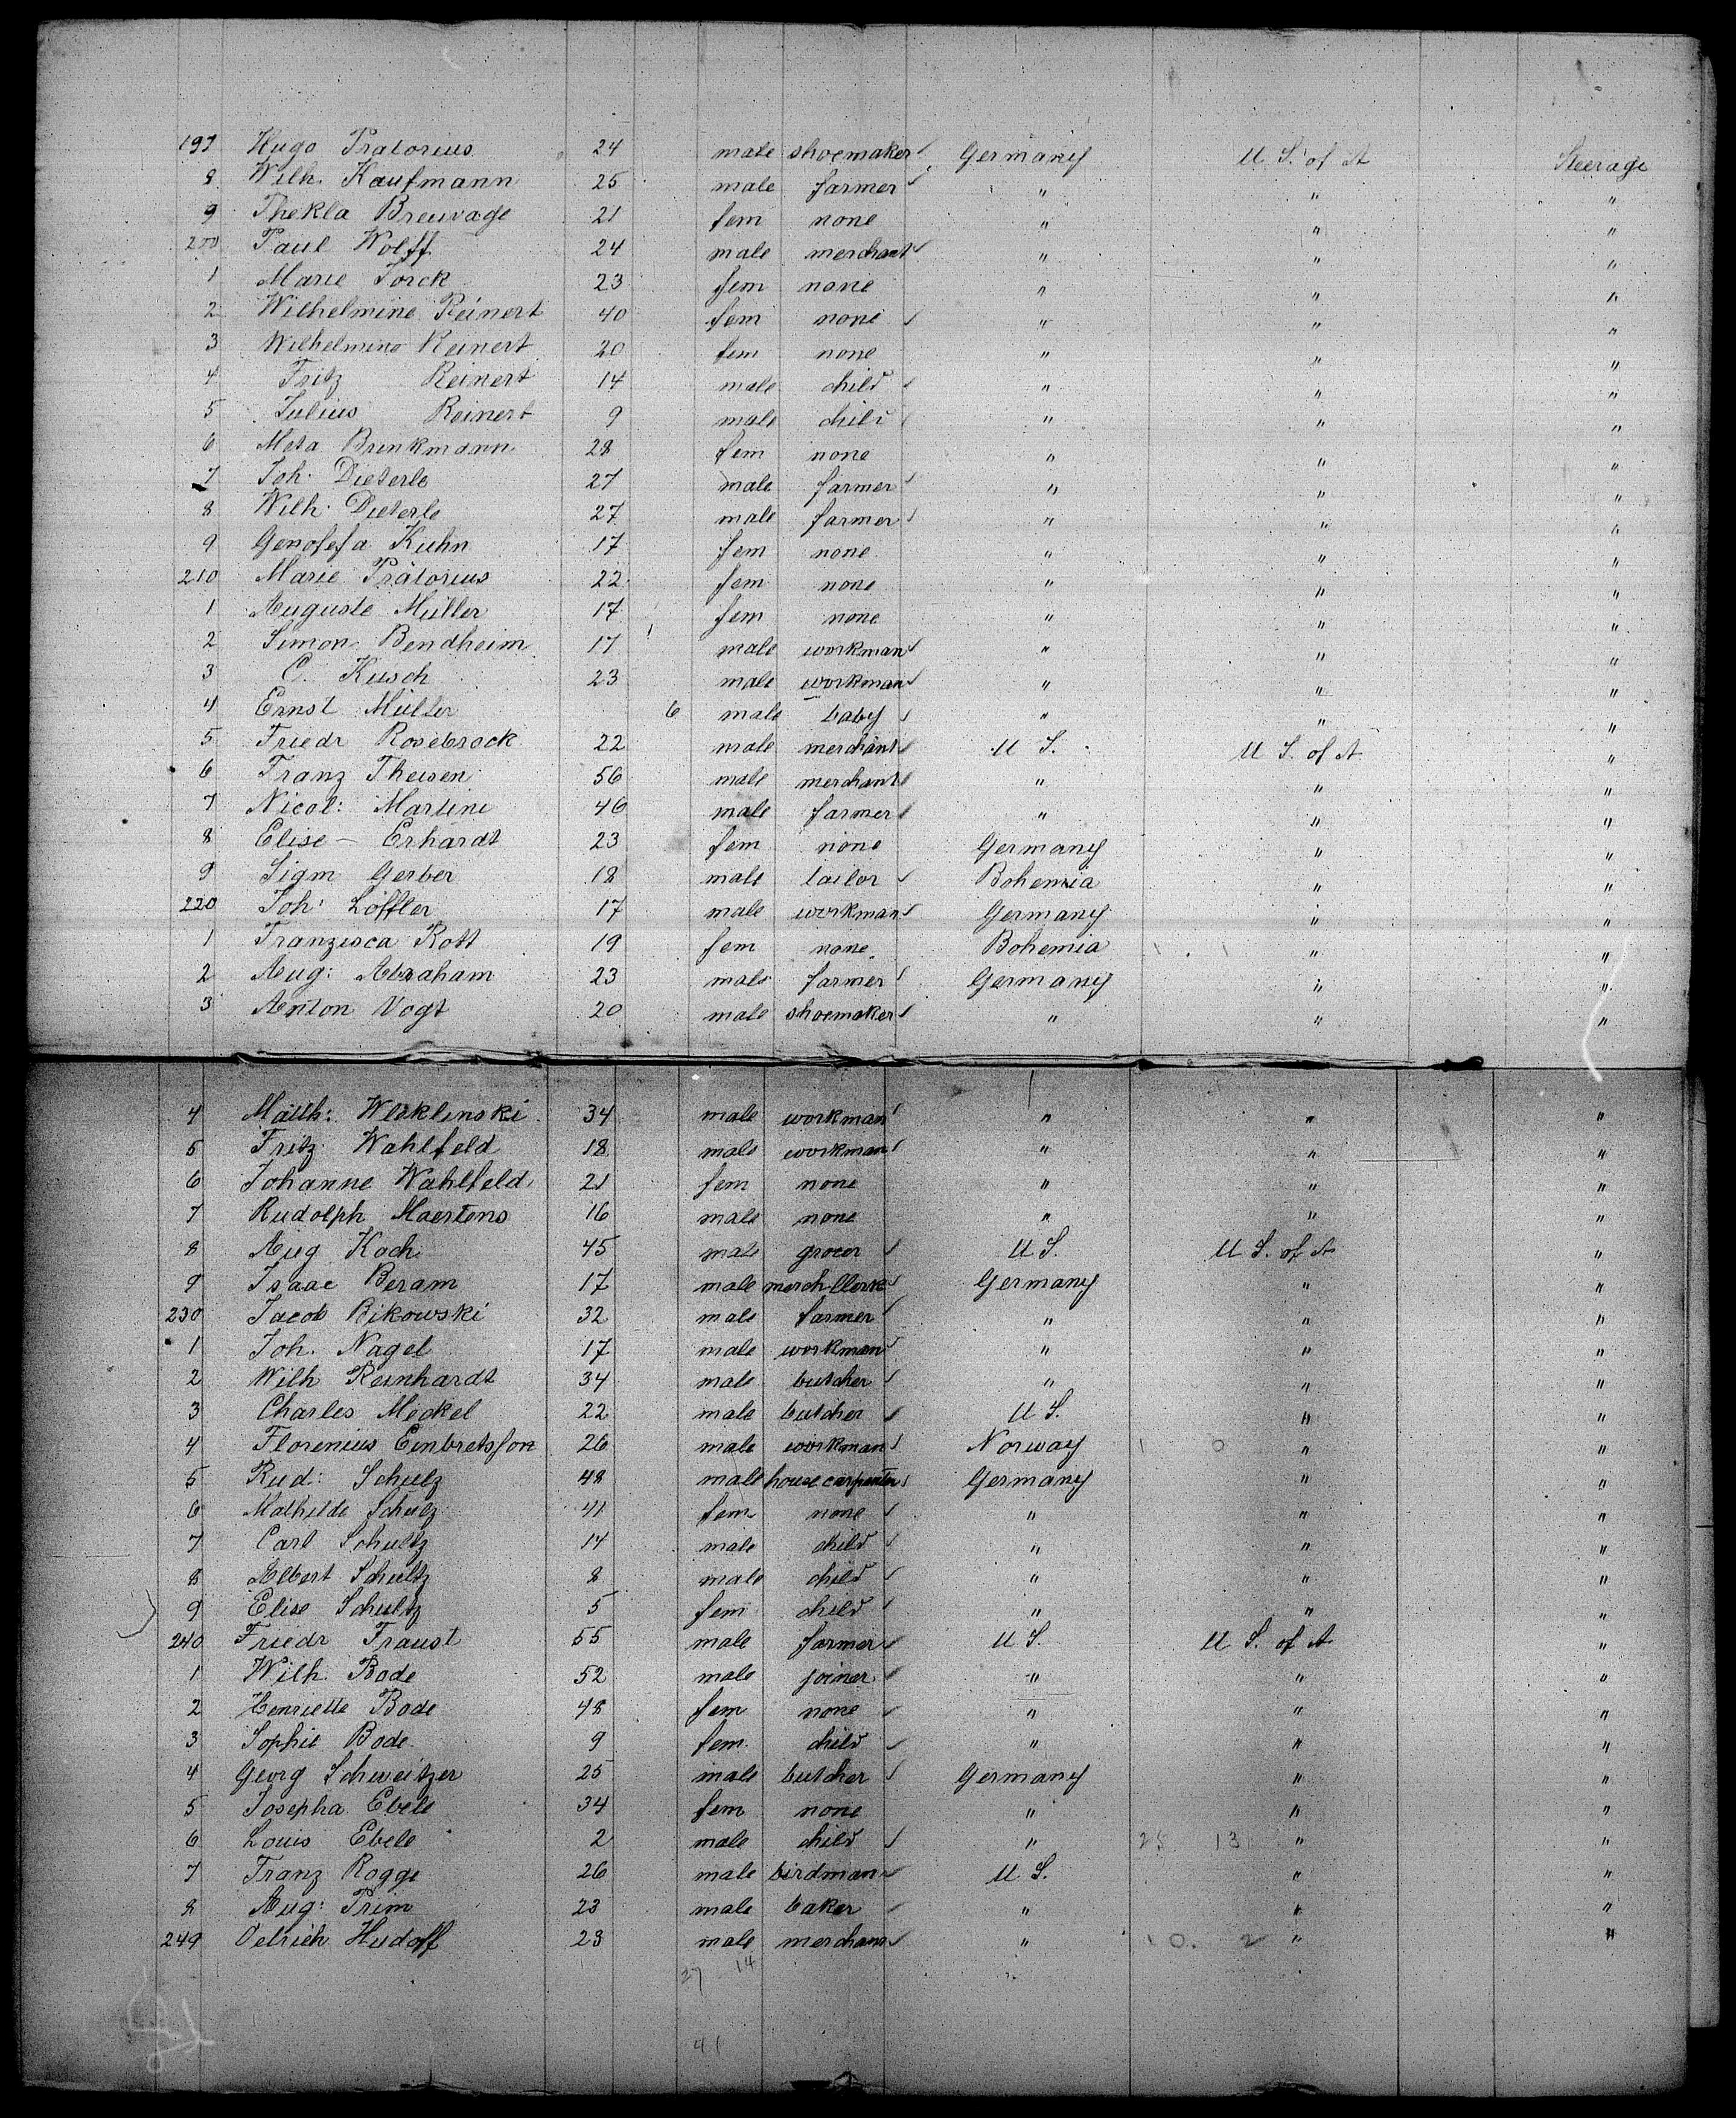 197 Hugo Pratorius 24 male shoemaker Germany U S. of A Steerage
8 Wilh. Kaufmann 25 male farmer " " "
9 Thekla Breuvage 21 fem none " " "
200 Paul Wolff 24 male merchant " " "
1 Marie Torck 23 fem none " " "
2 Wilhelmine Reinert 40 fem none " " "
3 Wilhelmine Reinert 20 fem none " " "
4 Fritz Reinert 14 male child " " "
5 Julius Reinert 9 male child " " "
6 Meta Brinkmann 28 fem none " " "
7 Joh. Dieterle 27 male farmer " " "
8 Wilh. Dieterle 27 male farmer " " "
9 Genofefa Kuhn 17 fem none " " "
210 Marie Prätorius 22 fem none " " "
1 Auguste Müller 17 fem none " " "
2 Simon Bendheim 17 male workman " " "
3 C. Kusch 23 male workman " " "
4 Ernst Müller 6 male baby " " "
5 Friedr Rosebrock 22 male merchant U S. U S. of A "
6 Franz Theisen 56 male merchant " " "
7 Nicol: Martini 46 male farmer " " "
8 Elise Erhardt 23 fem none Germany " "
9 Sigm Gerber 18 male tailor Bohemia " "
220 Joh: Löffler 17 male workman Germany " "
1 Franzisca Rott 19 fem none Bohemia " "
2 Aug: Abraham 23 male farmer Germany " "
3 Anton Vogt 20 male shoemaker " " "
4 Math: 34 male workman " " "
5 Fritz Wahlfeld 18 male workman " " "
6 Johanne Wahlfeld 21 fem none " " "
7 Rudolph Maertens 16 male none " " "
8 Aug Koch 45 male grocer U S. U S. of A "
9 Isaac Beram 17 male merch Clerk Germany " "
230 Jacob Bikowski 32 male farmer " " "
1 Joh. Nagel 17 male workman " " "
2 Wilh Reinhardt 34 male butcher " " "
3 Charles Meckel 22 male butcher U S. " "
4 Florenius Embretsson 26 male workman Norway " "
5 Rud: Schulz 48 male house carpenter Germany " "
6 Mathilde Schulz 41 fem none " " "
7 Carl Schultz 14 male child " " "
8 Albert Schultz 8 male child " " "
9 Elise Schultz 5 fem child " " "
240 Friedr Traust 55 male farmer U S. U S. of A "
1 Wilh. Bode 52 male joiner " " "
2 Henriette Bode 48 fem none " " "
3 Sophie Bode 9 fem child " " "
4 Georg Schweitzer 25 male butcher Germany " "
5 Josepha Ebele 34 fem none " " "
6 Louis Ebele 2 male child " 25 13 " "
7 Franz Rogge 26 male birdman U. S. " "
8 Aug: Prim 23 male baker " " "
249 Oelrich Hudoff 23 male merchant " 10. 2 " "
27 14
41